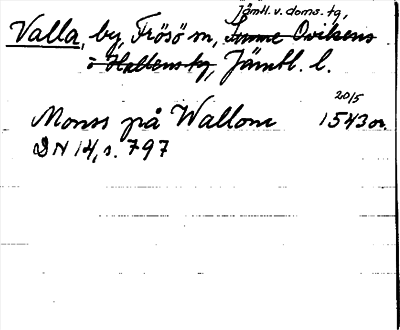 Jämtl. v. doms. tg,
Valla, by, Frösö sn, Sunne Ovikens
o Hallens tg, Jämtl. l.
20/5
Mons på Wallom 1543 or.
DN 14, s. 797